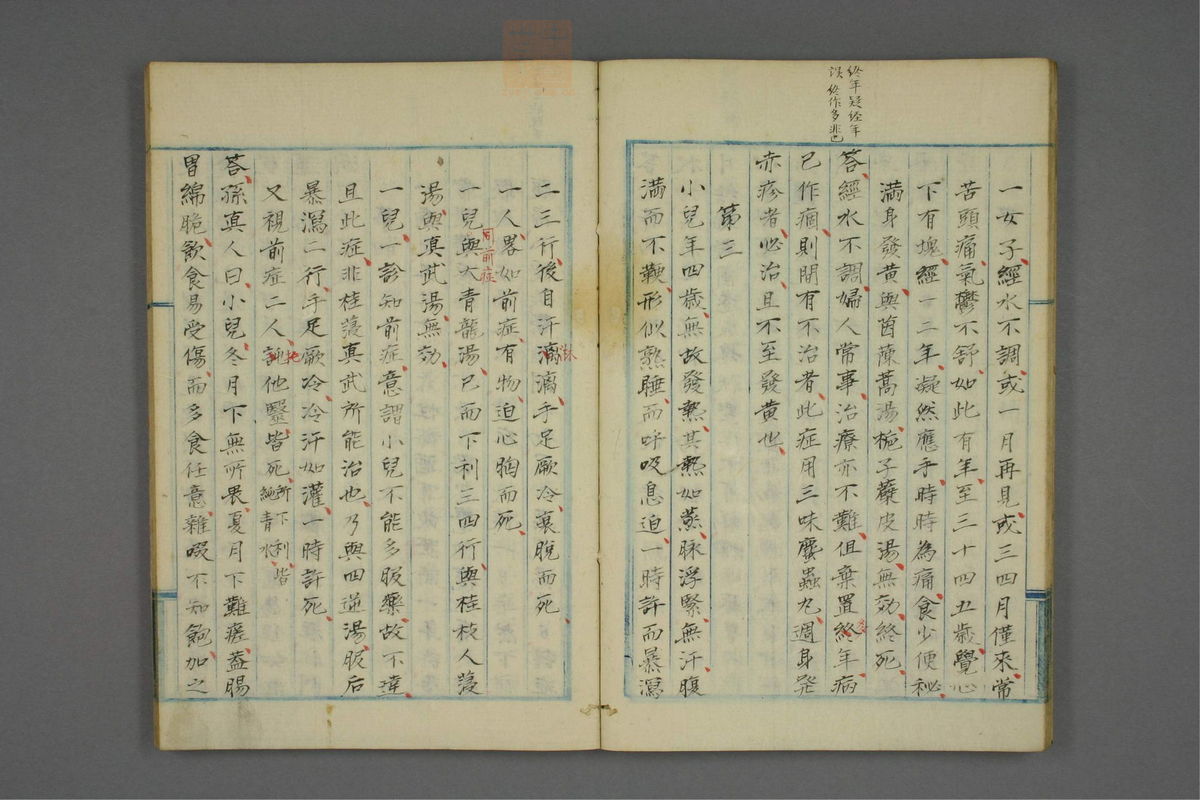 終年疑経年
誤 終作多非也
一女子經水不調或一月再見或三四月僅來常
苦頭痛氣鬱不舒如此有年至三十四五歲覺心
下有塊經一二年凝然應手時時為痛食少便秘
滿身發黃與茵蔯蒿湯梔子蘗皮湯無効終死
答經水不調婦人常事治療亦不難但棄置終年病
已作痼則間有不治者此症用三味䗪蟲丸週身発
赤疹者必治且不至發黃也
第三
小兒年四歲無故發熱其熱如蒸脉浮緊無汗腹
滿而不鞕形似熟睡而呼吸息迫一時許而暴瀉
二三行後自汗滴漓手足厥冷衰脫而死
淋
一人畧如前症有物迫心胸而死
同前症
一兒與大青龍湯已而下利三四行與桂枝人薓
湯與真武湯無効
一兒一診知前症意謂小兒不能多服藥故不瑋
且此症非桂薓真武所能治也乃與四逆湯服后
暴瀉二行手足厥冷冷汗如灌一時許死
又視前症二人託他醫皆死所下利皆
純青水
答孫真人曰小兒冬月下無所畏夏月下難瘥蓋腸
胃綿脆飲食易受傷而多食任意雜啜不知飽加之